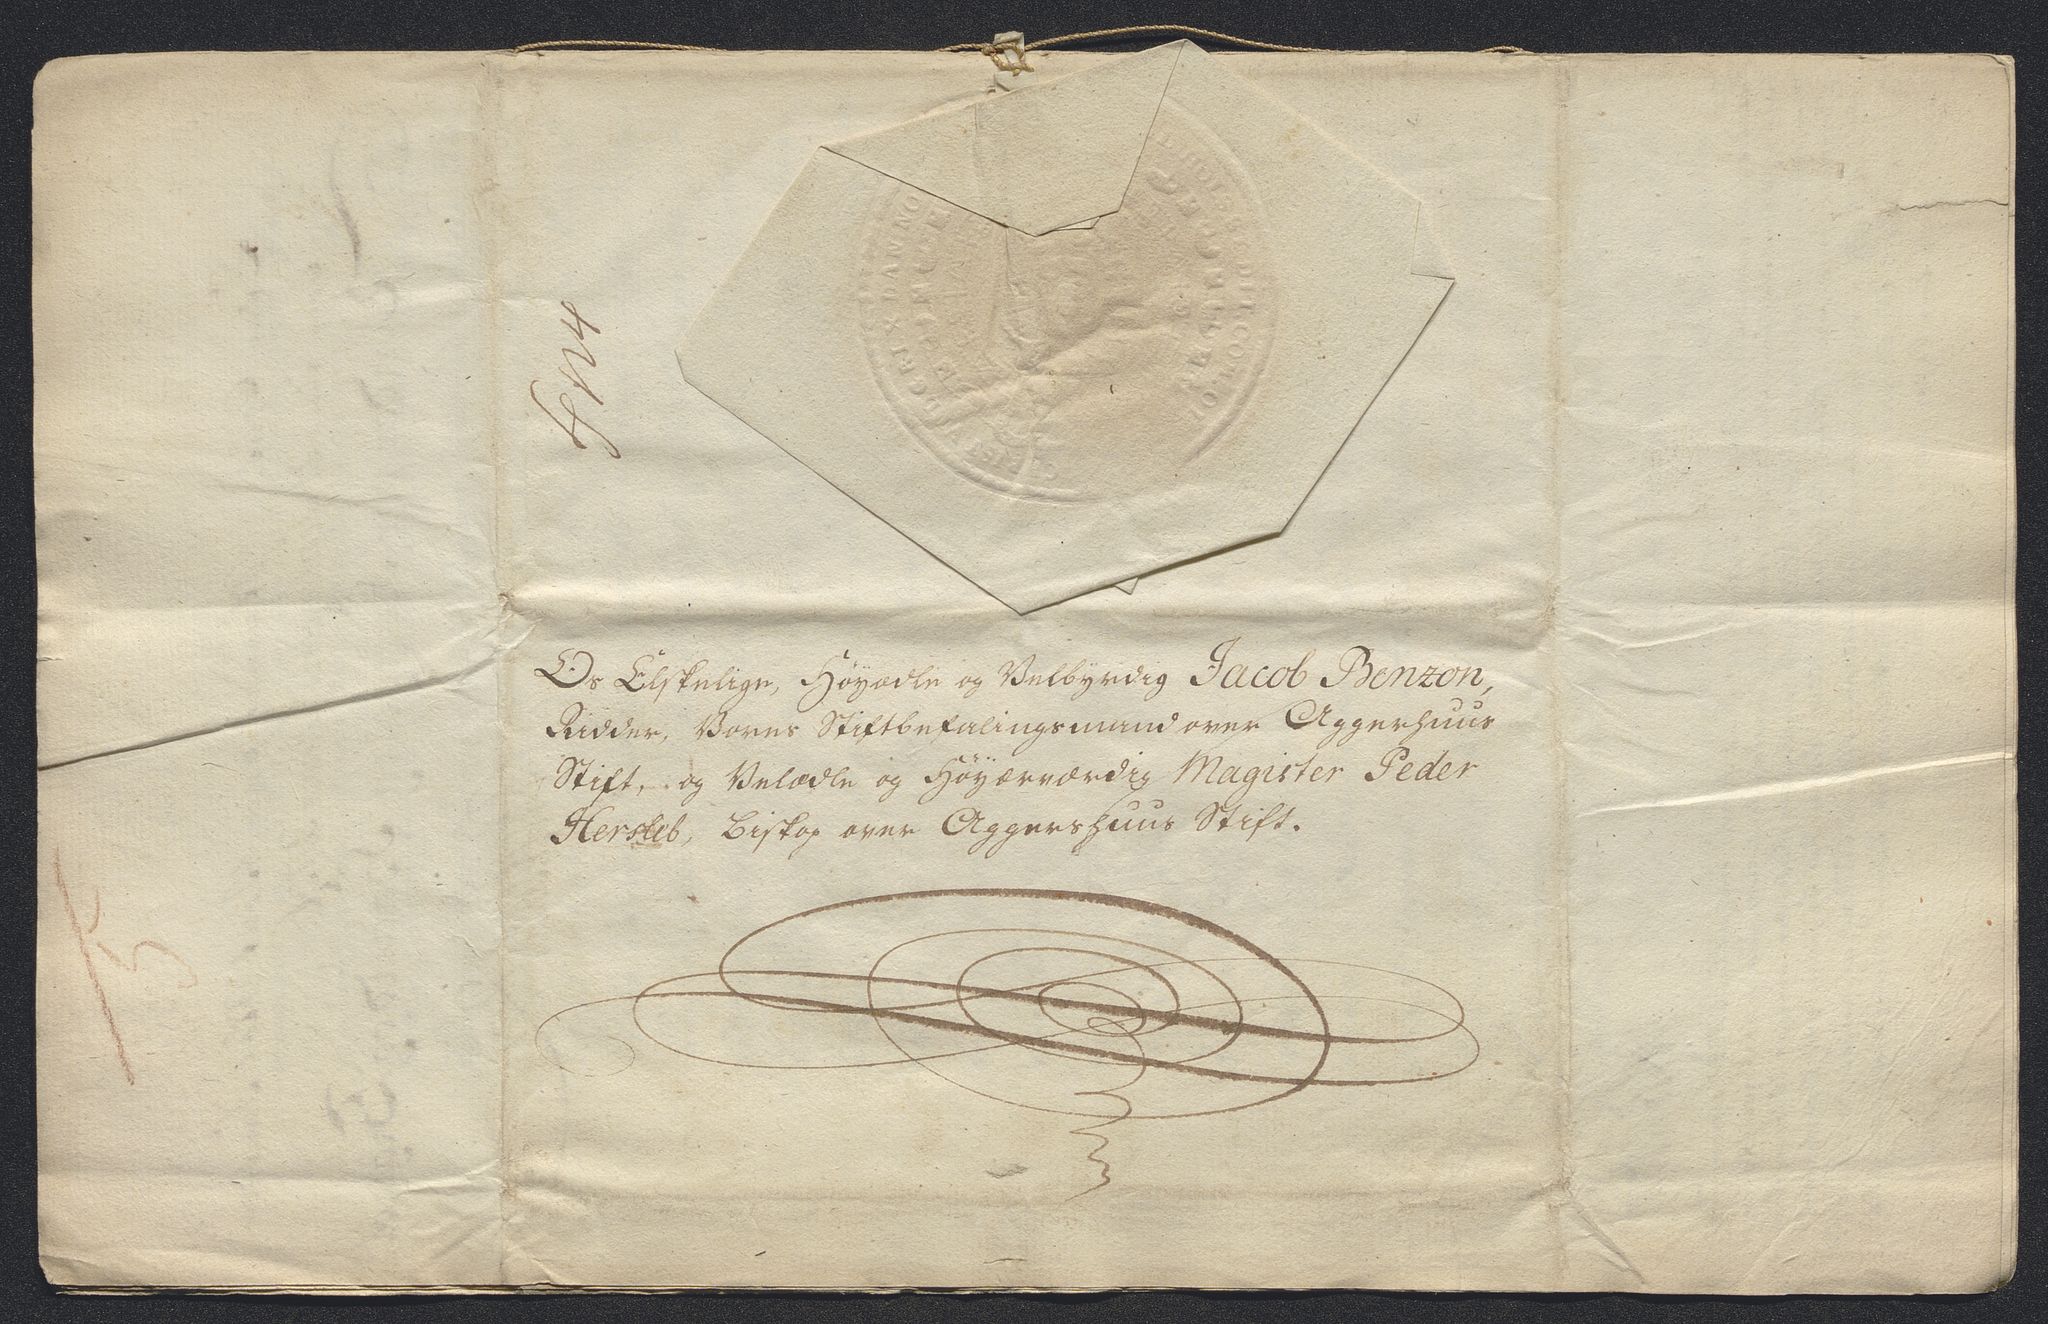 No 4
Os Elskelige, Höyædle og Velbyrdig Jacob Benzon,
Ridder, Vores Stiftbefalingsmand over Aggerhuus
Stift, og Velædle og Höyærværdig Magister Peder
Hersleb, Biskop over Aggershuus Stift.